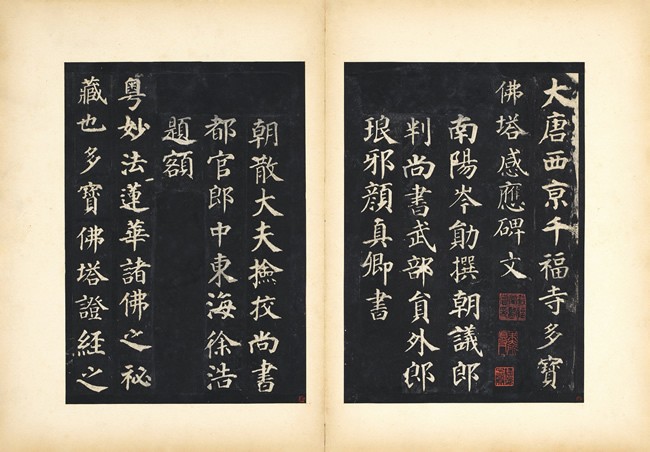 大唐西京千福寺多寶
佛塔感應碑文
南陽岑勛撰朝議郎
判尚書武部員外郎
琅邪顏真卿書
朝散大夫撿挍尚書
都官郎中東海徐浩
題額
粵妙法蓮華諸佛之祕
藏也多寶佛塔證經之